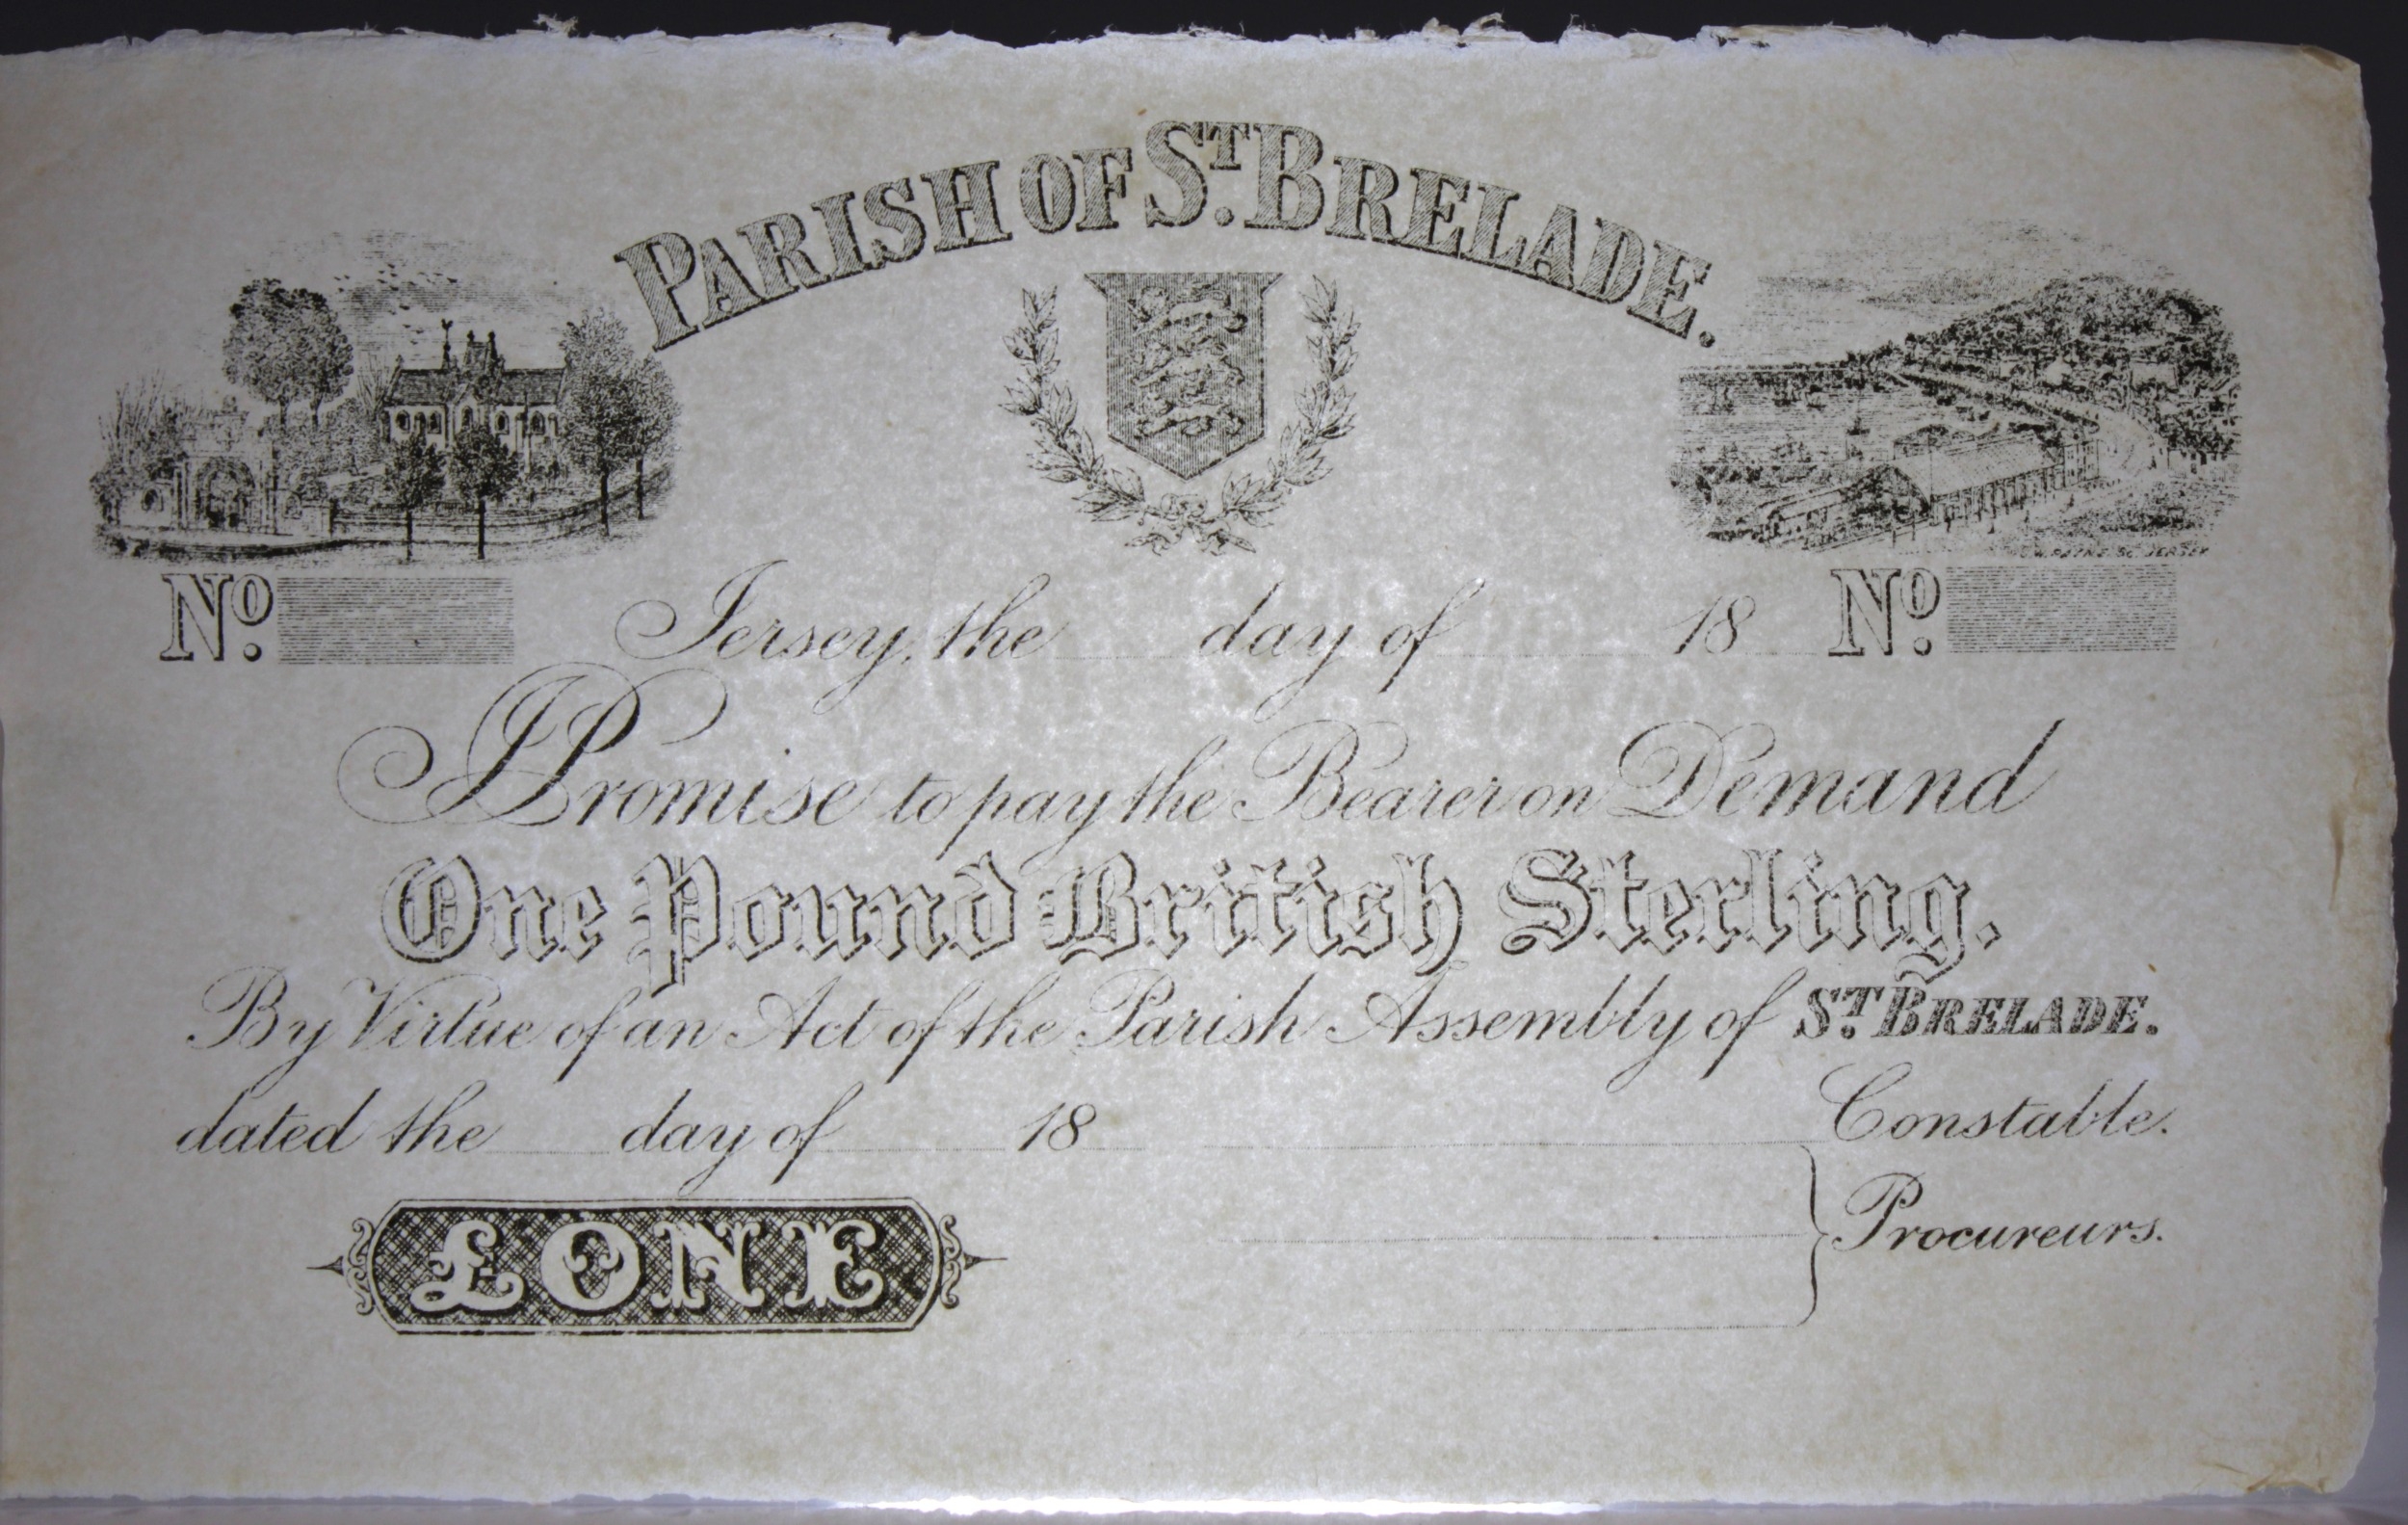 PARISH OF ST. BRELADE.
W. PAYNE SC. JERSEY
No. Jersey, the day of 18 No.
I Promise to pay the Bearer on Demand
One Pound British Sterling.
By Virtue of an Act of the Parish Assembly of ST. BRELADE.
dated the day of 18 Constable.
Procureurs.
£ ONE